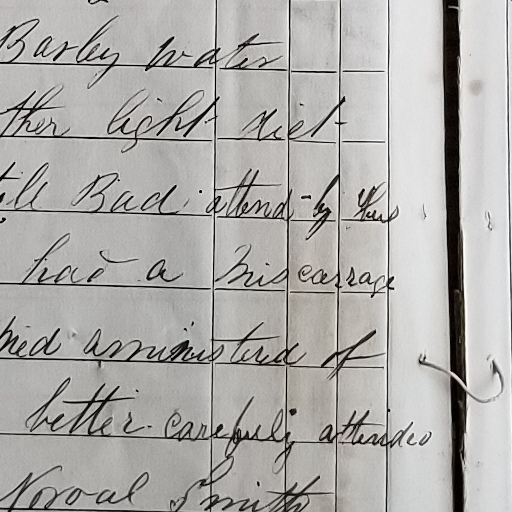 Barley water
ther light diet
ill Bad. attend by
had a Miscarrage
aministered of
better. carefully attended
Norval Smith